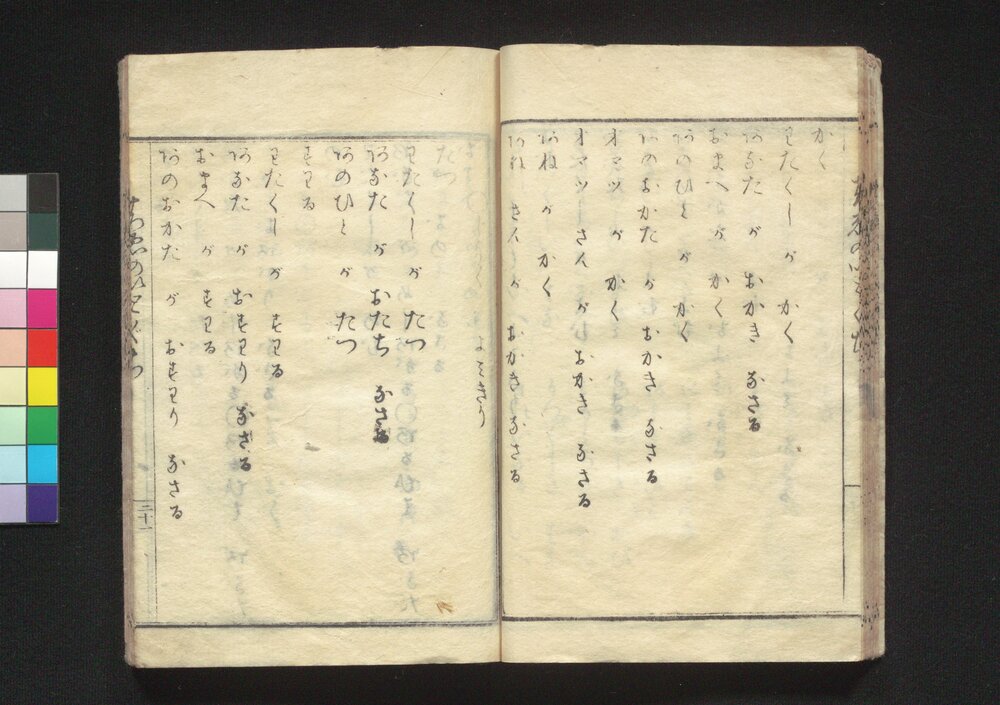 かく
わたくし が かく
あなた が おかき なさる
おまへ が かく
あのひと が かく
あのおかた が おかき なさる
オマツ が かく
オマツ さん が おかき なさる
あね が かく
あね さん が おかき なさる
よみきり
たつ
わたくし が たつ
あなた が おたち なさる
あのひと が たつ
すわる
わたくし が すわる
あなた が おすわり なさる
おまへ が すわる
あのおかた が おすわり なさる
二十一